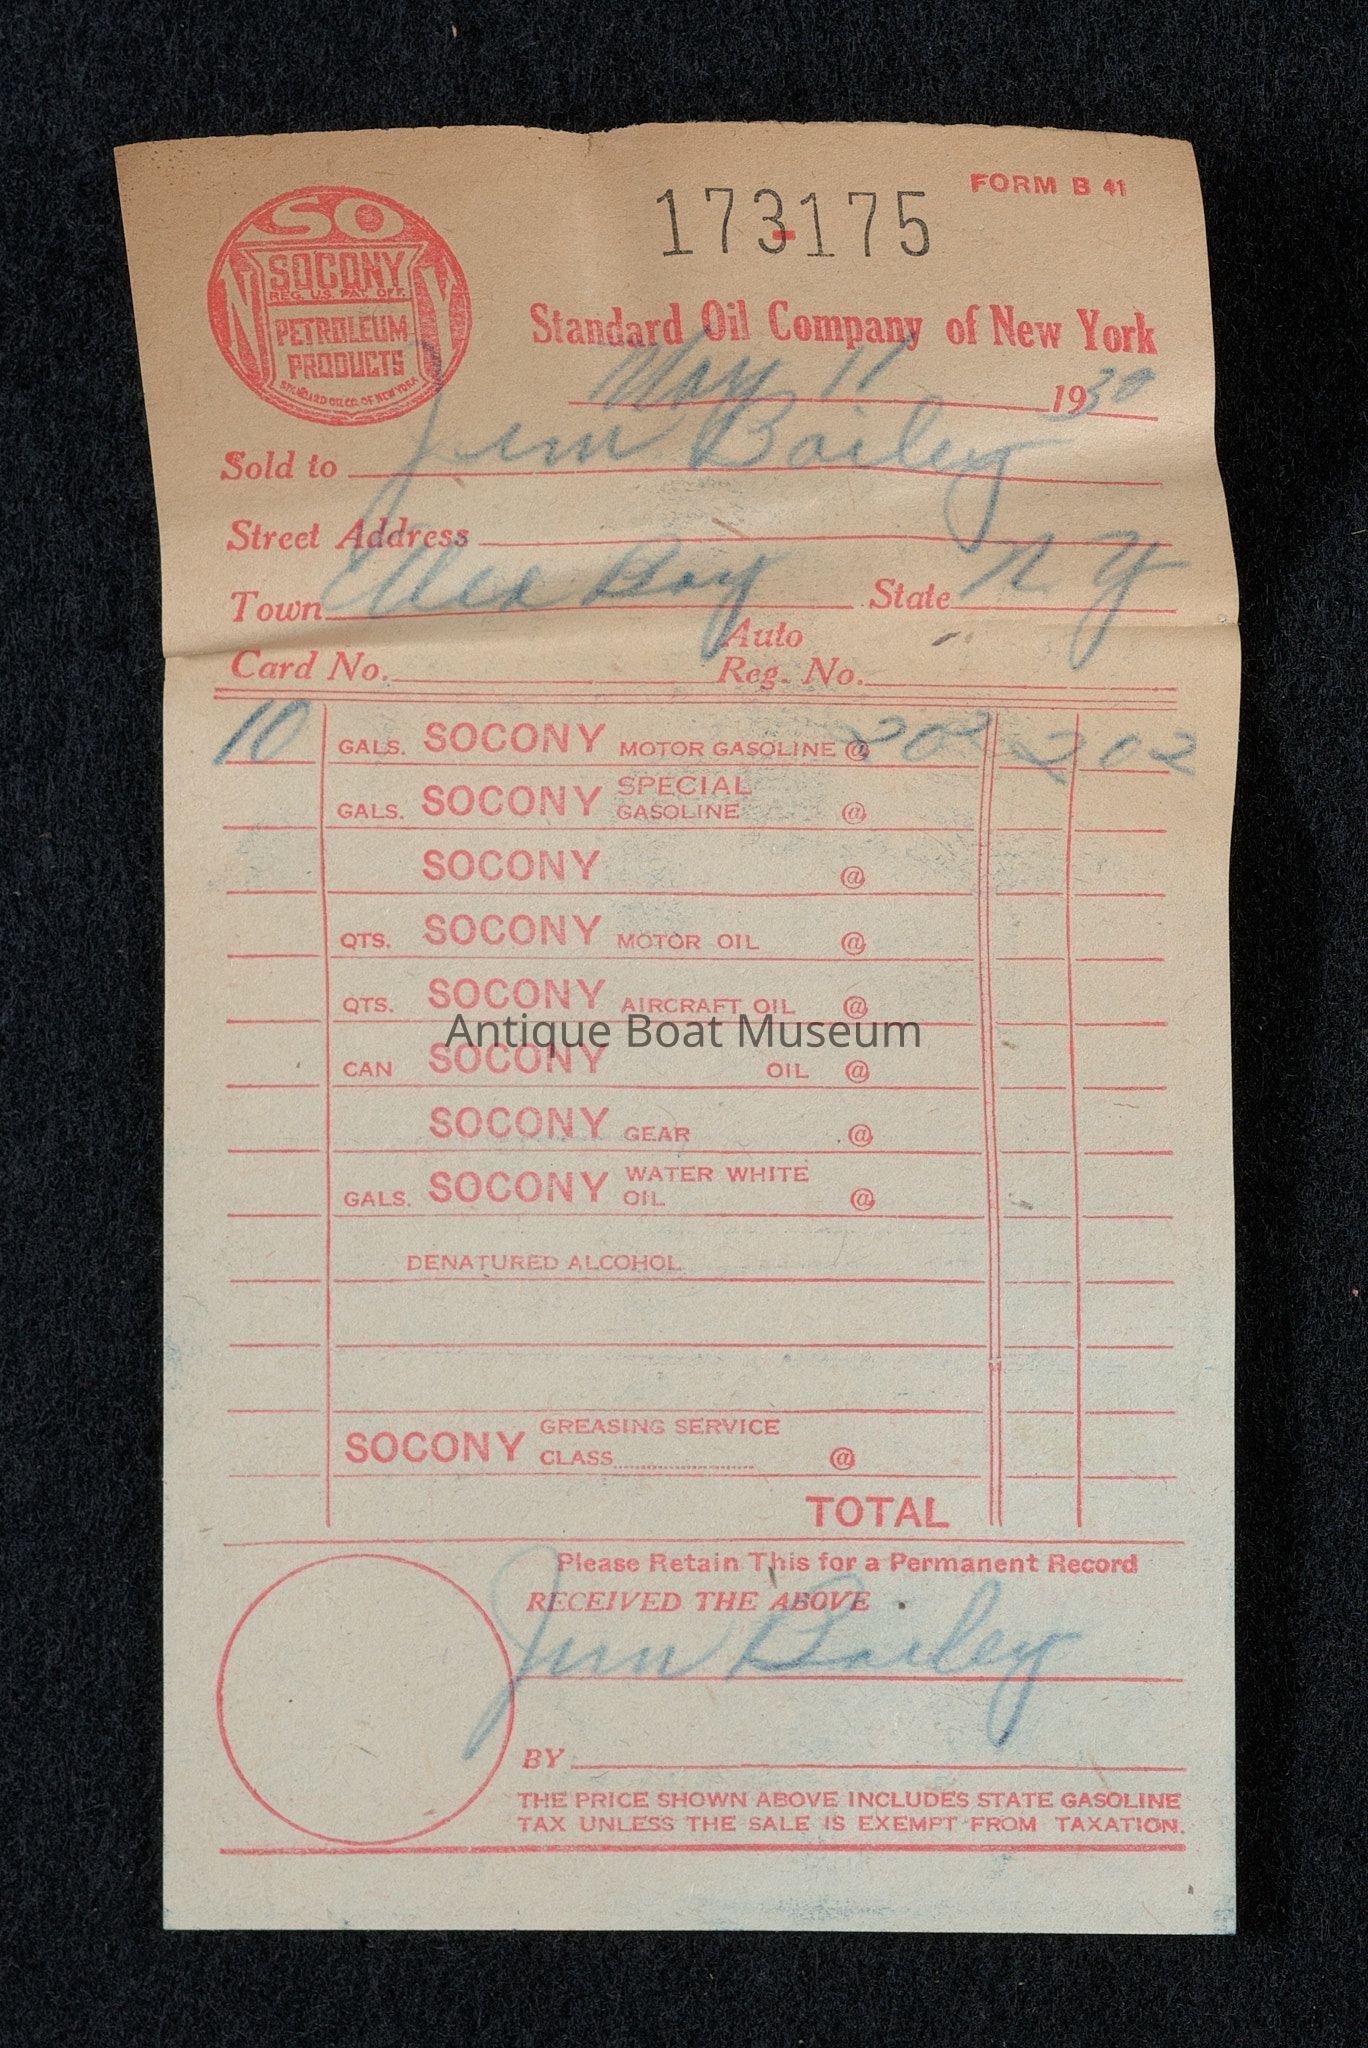 FORM B 41
173-175
SO
N Y
SOCONY
REG. U.S. PAT. OFF.
PETROLEUM
PRODUCTS
STANDARD OIL CO. OF NEW YORK
Standard Oil Company of New York
May 11 1930
Sold to Jim Bailey
Street Address
Town Alex Bay State N Y
Card No. Auto Reg. No.
10 GALS. SOCONY MOTOR GASOLINE @ 202 2 02
GALS. SOCONY SPECIAL GASOLINE @
SOCONY @
QTS. SOCONY MOTOR OIL @
QTS. SOCONY AIRCRAFT OIL @
Antique Boat Museum
CAN SOCONY OIL @
SOCONY GEAR @
GALS. SOCONY WATER WHITE OIL @
DENATURED ALCOHOL
SOCONY GREASING SERVICE
CLASS @
TOTAL
Please Retain This for a Permanent Record
RECEIVED THE ABOVE
Jim Bailey
BY
THE PRICE SHOWN ABOVE INCLUDES STATE GASOLINE
TAX UNLESS THE SALE IS EXEMPT FROM TAXATION.